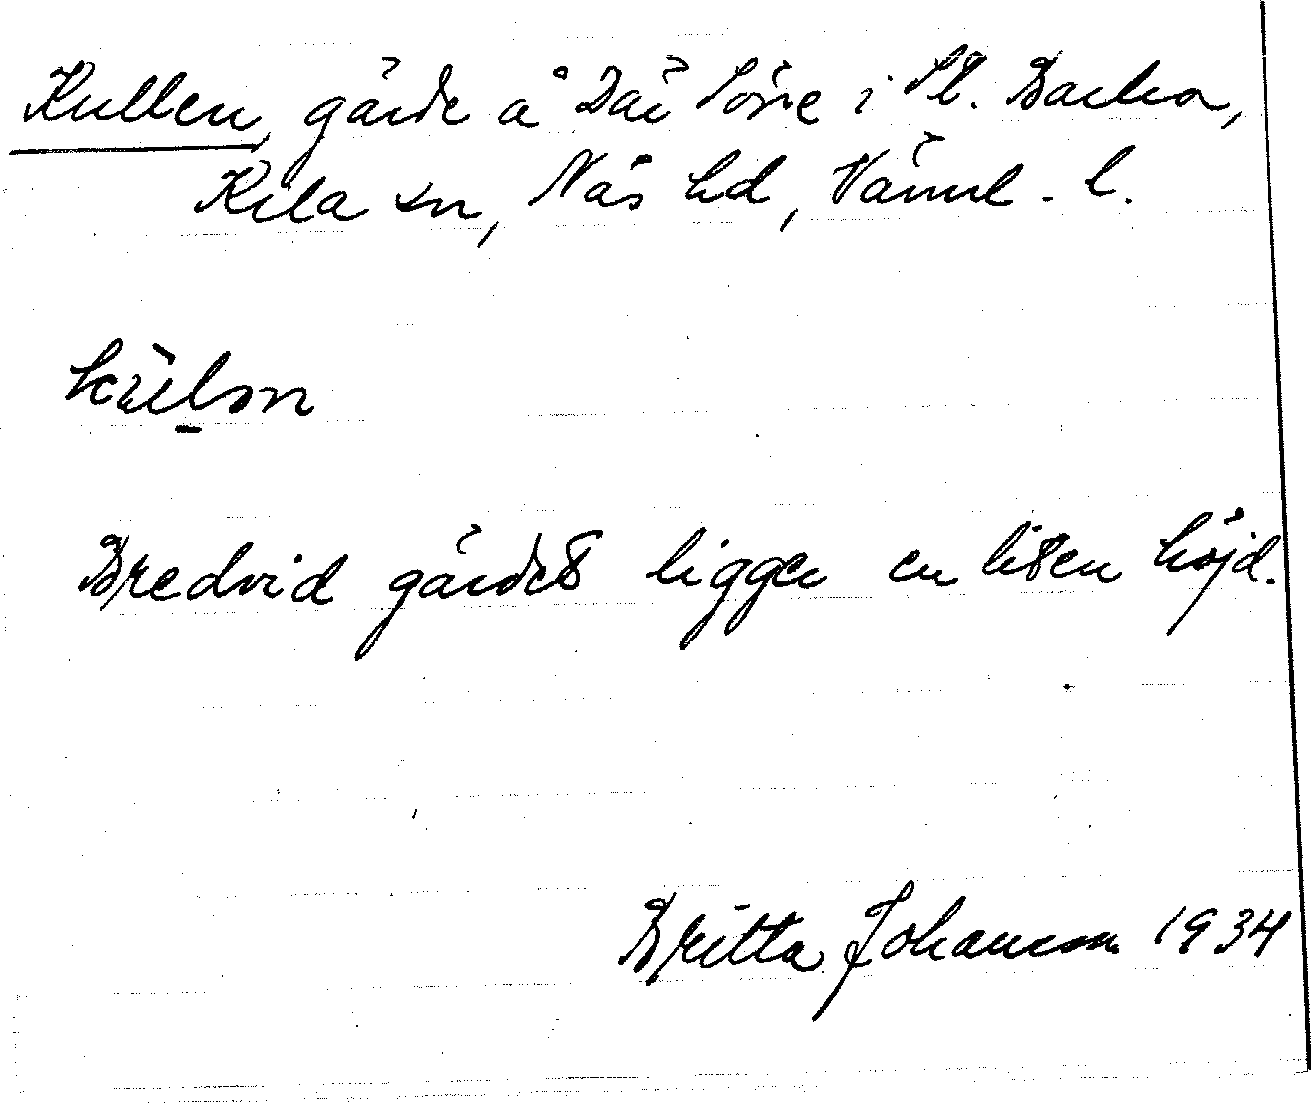 Kullen, gärde å Där Söre i St. Backa,
Kila sn, Näs hd, Värml. l.
Bredvid gärdet ligger en liten höjd.
Britta Johansson 1934